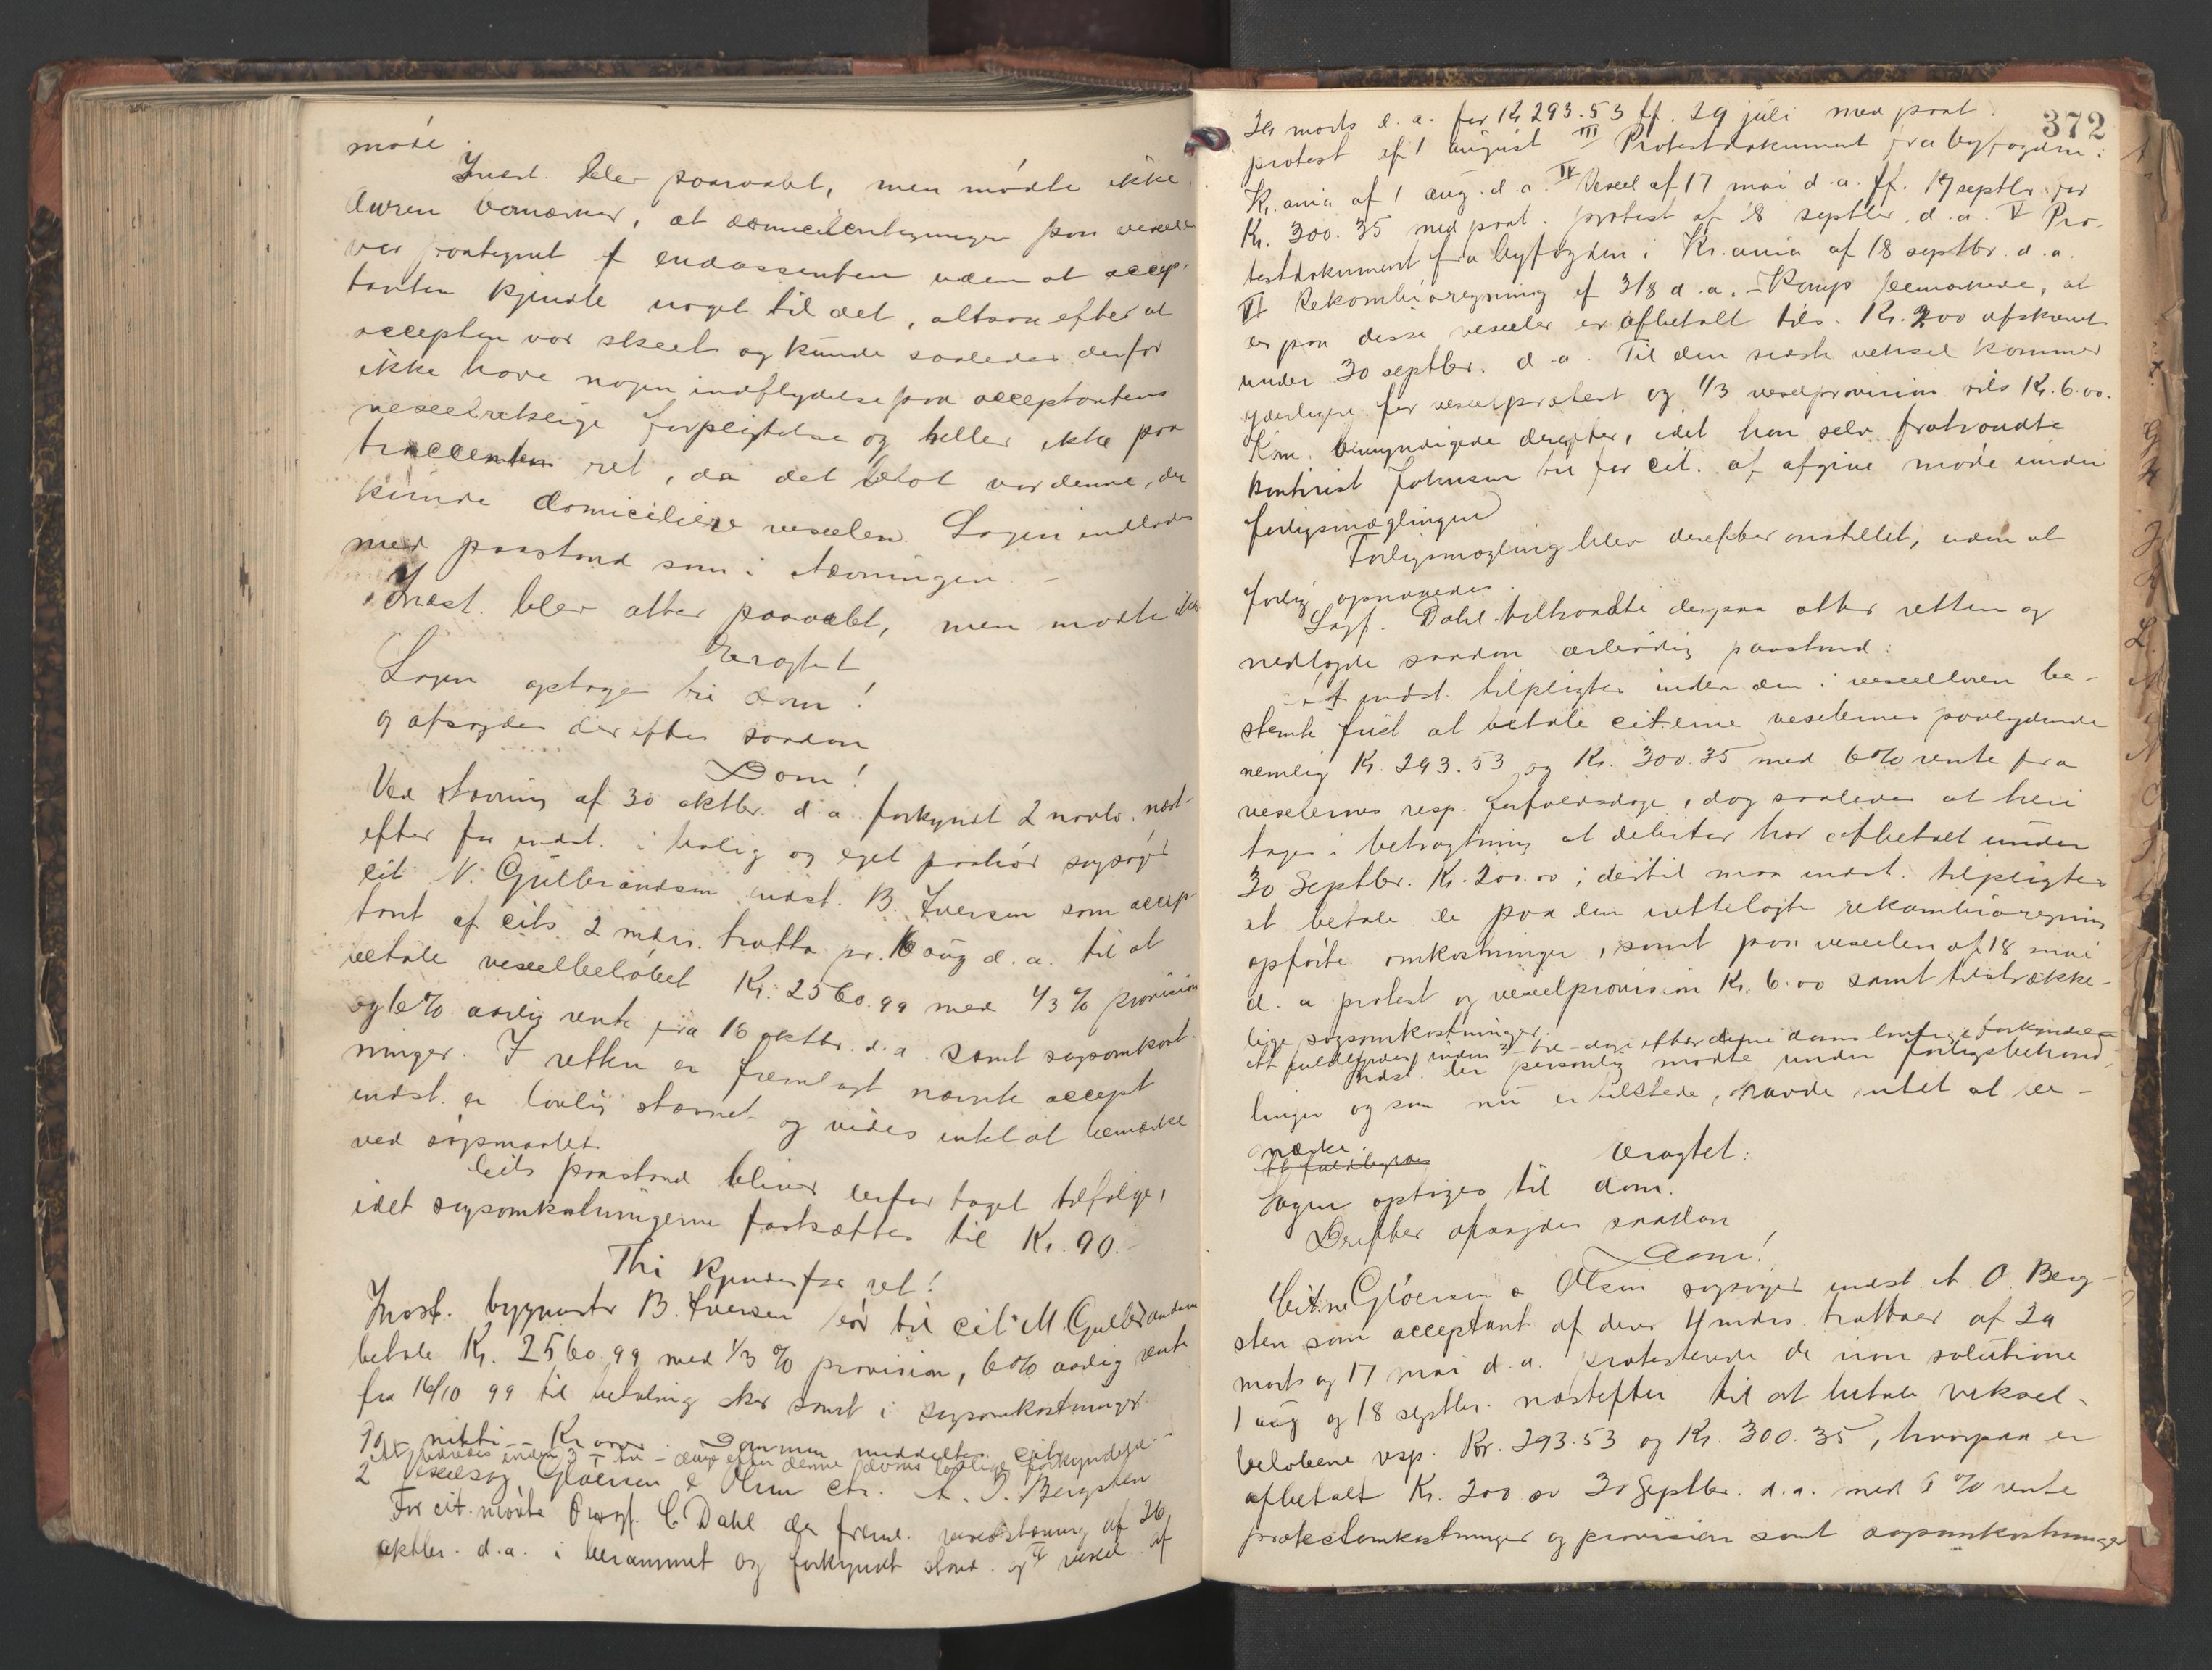 møde.
Indst. blev paaraabt, men mødte ikke.
Dommeren bemærker, at domicileringen paa vexelen
var paategnet af endossenten uden at accep-
tanten kjendte noget til det, altsaa efter at
accepten var skeet og kunde saaledes derfor
ikke have nogen indflydelse paa acceptantens
vexelretslige forpligtelse og heller ikke paa
trassentens ret, da det blot var denne, der
kunde domiciliere vexelen. Sagen indlodes
med paastand som i stevningen. -
Indst. blev atter paaraabt, men mødte ikke
Eragtet
Sagen optages til dom!
og afsagdes derefter saadan
Dom!
Ved stevning af 30 oktbr. d.a. forkyndt 2 novbr. næst-
efter for indst. i bolig og eget paahør sagsøger
cit N. Gulbrandsen indst. B. Iversen som accep-
tant af cits 2 mdrs. tratta pr. 16 aug d.a. til at
betale vexelbeløbet Kr. 2560.99 med 1/3 % provision
og 6 % aarlig rente fra 16 oktbr. d.a. samt sagsomkost-
ninger. I retten er fremlagt nævnte accept
indst. er lovlig stævnet og vides intet at bemærke
ved søgsmaalet
Cits paastand bliver derfor taget tilfølge,
idet sagsomkostningerne fastsættes til Kr. 90.-
Thi kjendes for ret!
Indst. bygmester B. Iversen bør til cit M. Gulbrandsen
betale Kr. 2560.99 med 1/3 % provision, 6 % aarlig rente
fra 16/10 99 til betaling sker samt i sagsomkostninger
90 - nitti - Kroner. Dommen meddeltes cit.
At efterkommes inden 3 - tre - dage efter denne doms lovlige forkyndelse. -
2 Vexelsag Gløersen & Olsen ctr. A. O. Bergsten
For cit. mødte Overrsagf. C Dahl der freml. vexelstævning af 26
oktbr. d.a. i berammet og forkyndt stand og I vexel af
372
29 marts d.a. for Kr 293.53 ff. 29 juli med paat.
protest af 1 august III Protestdokument fra byfogden i
Kr.ania af 1 aug. d.a. IV Vexel af 17 mai d.a. ff. 17 septbr. for
Kr. 300.35 med paat. protest af 18 septbr. d.a. V Pro-
testdokument fra byfogden i Kr.ania af 18 septbr. d.a.
VI Rekambioregning af 3/8 d.a. - Komp bemærkede, at
er paa disse vexeler er afbetalt tils. Kr. 200 afskrevet
under 30 septbr. d.a. Til den sidste veksel kommer
yderligere for vexelprotest og 1/3 vexelprovision tils Kr. 6.00.
Kom. bemyndigede derefter, idet han selv fratraadte
kontorist Johnsen til for cit. at afgive møde under
forligsmæglingen
Forligsmægling blev derefter anstillet, uden at
forlig opnaaedes.
Sagf. Dahl tiltraadte derpaa atter retten og
nedlagde saadan ærbødig paastand:
- at indst. tilpligtes inden den i vexelloven be-
stemte frist at betale citerne vexelernes paalydende
nemlig Kr. 293.53 og Kr. 300.35 med 6% rente fra
vexelernes resp. forfaldsdage, dog saaledes at heri
tages i betragtning at debitor har afbetalt under
30 Septbr. Kr. 200.00; dertil maa indst. tilpligtes
at betale de paa den irettelagte rekambioregning
opførte omkostninger, samt paa vexelen af 18 mai
d.a protest og vexelprovision Kr. 6.00 samt tilstrække-
lige sagsomkostninger.
At fuldbyrdes inden 3 - tre - dage efter denne doms lovlige forkyndelse
Indst. der personlig mødte under forligsbehand-
lingen og som nu er tilstede, havde intet at be-
mærke.
At fuldbyrdes
Eragtet:
Sagen optages til dom.
Derefter afsagdes saadan
Dom!
Cit.ne Gløersen & Olsen sagsøger indst. A. O. Berg-
sten som acceptant af deres 4 mdrs. trattaer af 29
marts og 17 mai d.a. protesterede de non solutione
1 aug og 18 septbr. næstefter til at betale veksel-
beløbene resp. Kr. 293.53 og Kr. 300.35, hvorpaa er
afbetalt Kr. 200 00 30 Septbr. d.a. med 6 % rente
protestomkostninger og provision samt sagsomkostninger